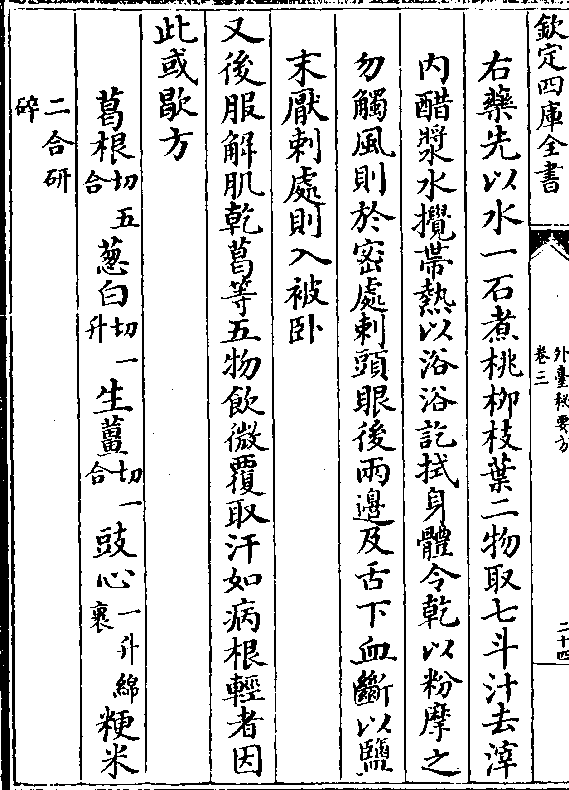 欽定四庫全書
外臺秘要方
卷三
二十四
右藥先以水一石煮桃柳枝葉二物取七斗汁去滓
内醋漿水攪帶熱以浴浴訖拭身體令乾以粉摩之
勿觸風則於密處刺頭眼後兩邊及舌下血斷以鹽
末厭刺處則入被卧
又後服解肌乾葛等五物飲微覆取汗如病根輕者因
此或歇方
葛根切五合葱白切一升生薑切一合豉心一升綿裹粳米
二合研碎